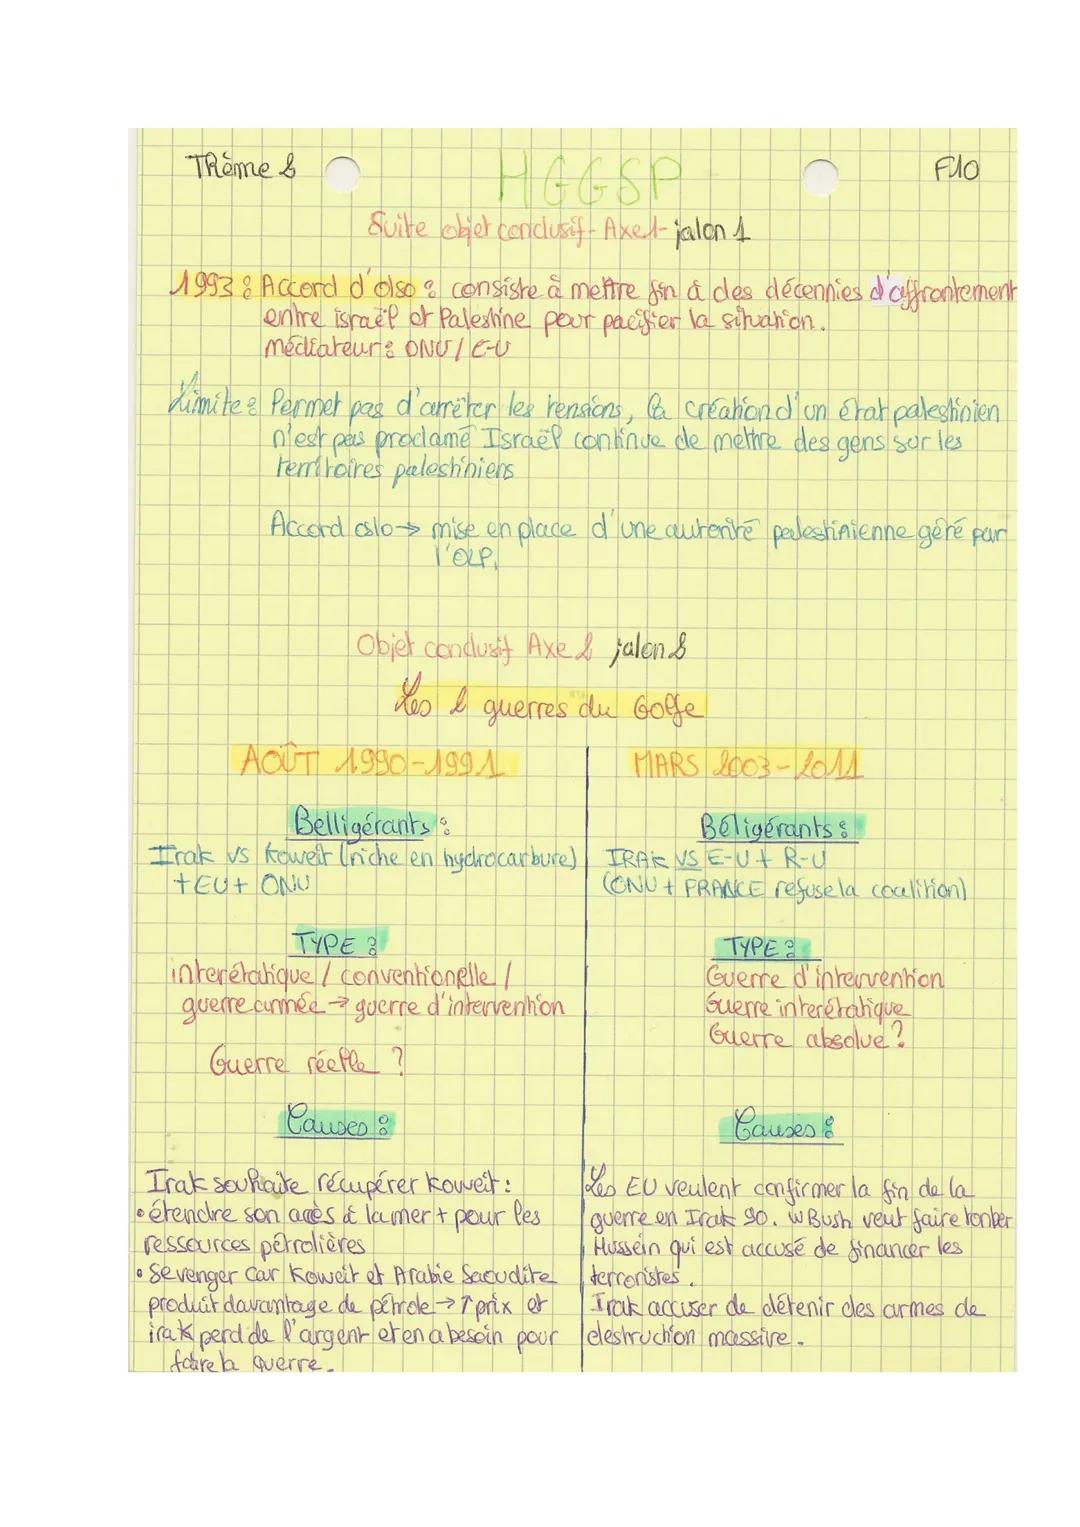 Thème 2
HGGSP
F10
Suite objet conclusif - Axe 1 - jalon 1
1993 : Accord d'olso : consiste à mettre fin à des décennies d'affrontement
entre israël et Palestine pour pacifier la situation.
médiateur : ONU / E-U
Limite : Permet pas d'arrêter les tensions, la création d'un état palestinien
n'est pas proclamé Israël continue de mettre des gens sur les
territoires palestiniens
Accord oslo → mise en place d'une autorité palestinienne géré par
l'OLP.
Objet conclusif Axe 2 jalon 2
Les 2 guerres du Golfe
AOÛT 1990-1991
Belligérants :
Irak vs Koweit (riche en hydrocarbure)
+ EU + ONU
TYPE :
interétatique / conventionelle /
guerre année → guerre d'intervention
Guerre réelle ?
Causes :
Irak souhaite récupérer Koweit :
• étendre son accès à la mer + pour les
ressources pétrolières
• Se venger car Koweit et Arabie Saoudite
produit davantage de pétrole → ↑ prix et
irak perd de l'argent et en a besoin pour
faire la guerre.
MARS 2003-2011
Béligérants :
IRAK VS E-U + R-U
(ONU + FRANCE refuse la coalition)
TYPE :
Guerre d'intervention
Guerre interétatique
Guerre absolue ?
Causes :
Les EU veulent confirmer la fin de la
guerre en Irak 90. W Bush veut faire tomber
Hussein qui est accusé de financer les
terroristes.
Irak accuser de détenir des armes de
destruction massive.